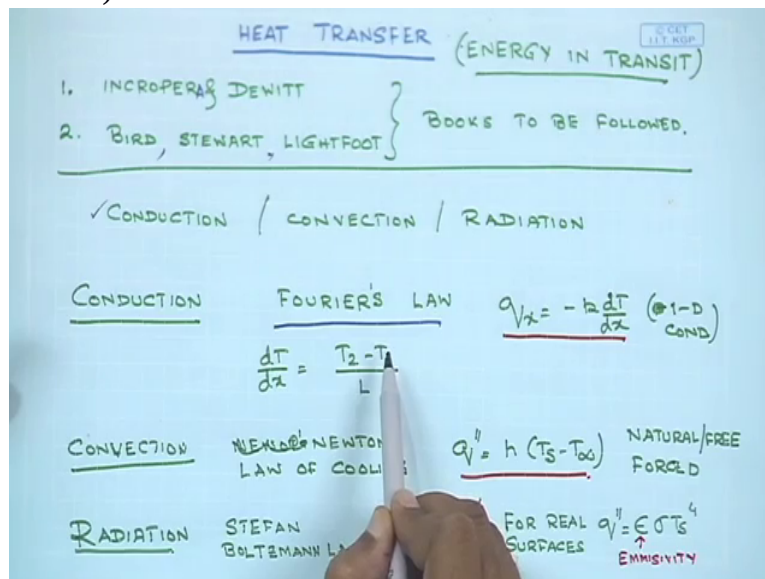 HEAT TRANSFER (ENERGY IN TRANSIT)
© CET
I.I.T. KGP
1. INCROPERA & DEWITT
2. BIRD, STEWART, LIGHTFOOT
BOOKS TO BE FOLLOWED.
✓CONDUCTION / CONVECTION / RADIATION
CONDUCTION FOURIER'S LAW qx = -k dT/dx (1-D COND)
dT/dx = T2 - T / L
CONVECTION NEWTON LAW OF COOLING q" = h (Ts - T∞) NATURAL/FREE FORCED
RADIATION STEFAN BOLTZMANN FOR REAL SURFACES q" = ϵ σ Ts⁴
EMMISIVITY